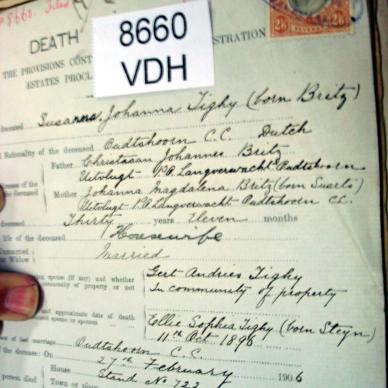 8660. Filed
8660
VDH
2/6
DEATH
ISTRATION
THE PROVISIONS CONT
ESTATES PROCL
deceased Susanna Johanna Tighy (born Britz)
Nationality of the deceased Oudtshoorn C.C. Dutch
Father Christiaan Johannes Britz
Uitvlugt P.A. Langverwacht Oudtshoorn
Names of the
deceased
Mother Johanna Magdalena Britz (born Swarts)
Uitvlugt P.A. Langverwacht Oudtshoorn CC.
deceased Thirty years Eleven months
life of the deceased Housewife
Unmarried
Widower Married
spouse (if any) and whether
community of property or not
Gert Andries Tighy
In community of property
and approximate date of death
spouse or spouses
Ellie Sophia Tighy (born Steyn)
11th Oct 1896
of last marriage Oudtshoorn C.C.
deceased: On 27th February 1906
House
Stand No 723
Town or place